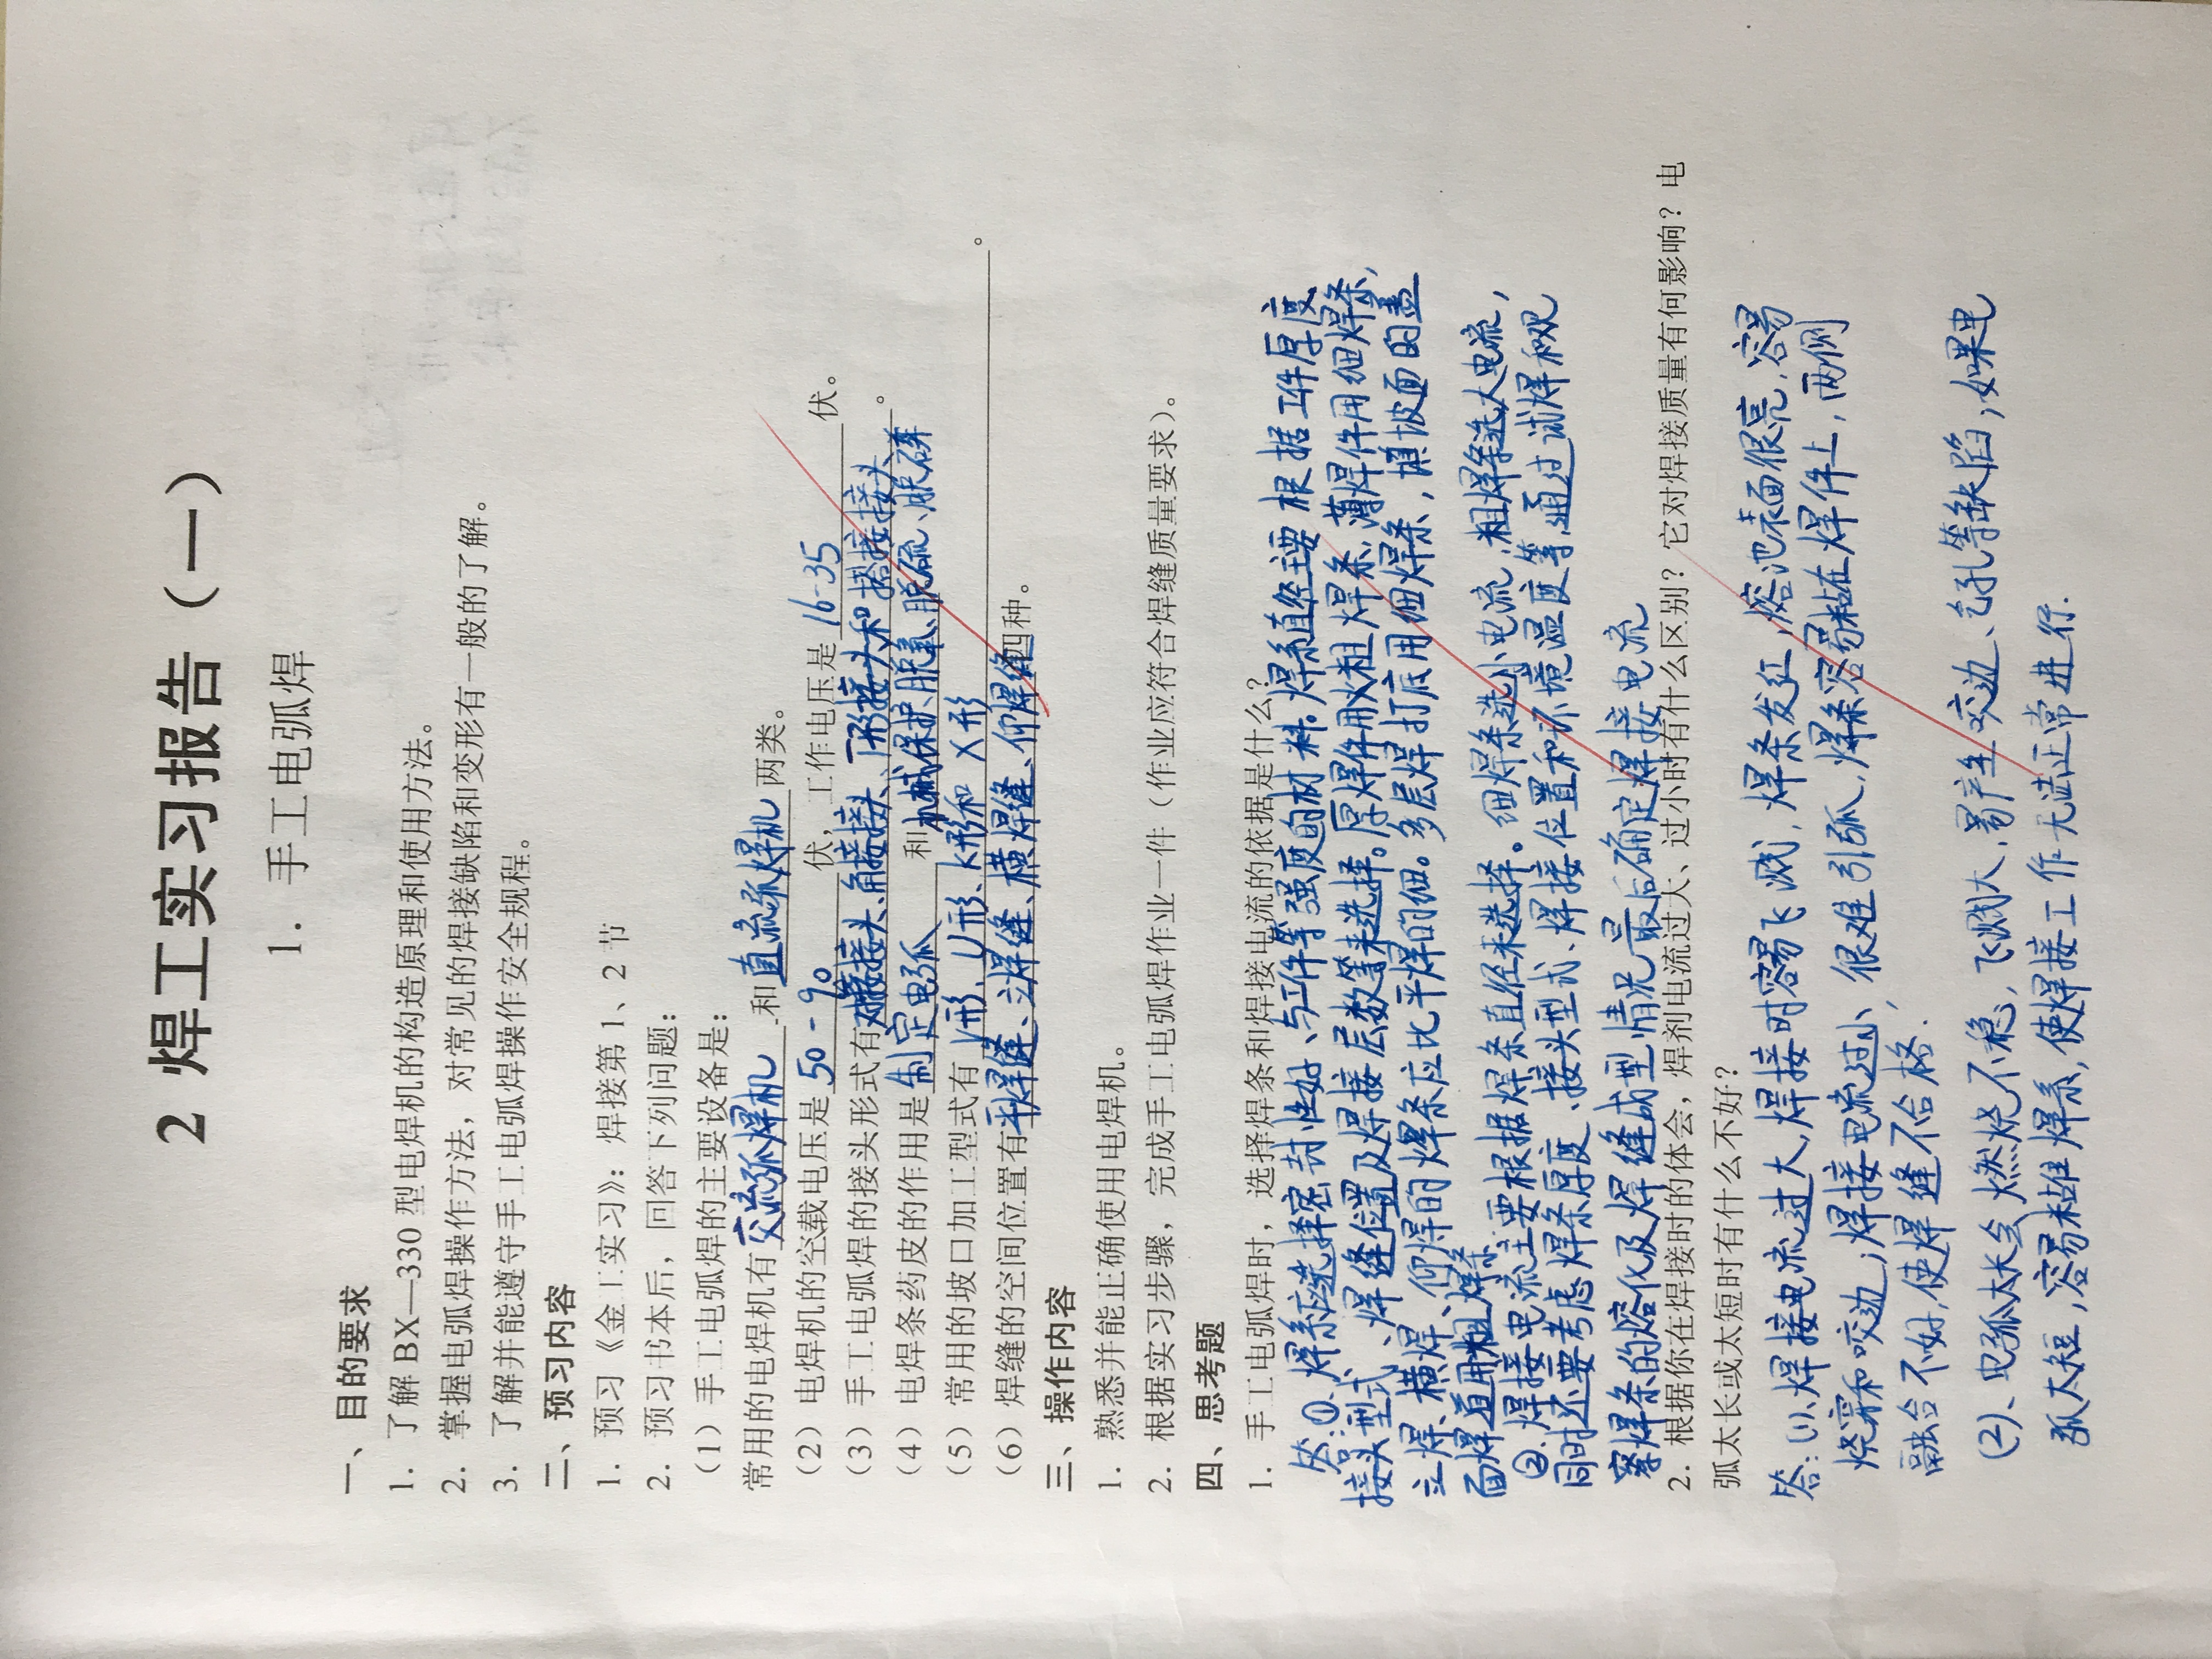 2 焊工实习报告（一）
1. 手工电弧焊
一、目的要求
1. 了解 BX—330 型电焊机的构造原理和使用方法。
2. 掌握电弧焊操作方法，对常见的焊接缺陷和变形有一般的了解。
3. 了解并能遵守手工电弧焊操作安全规程。
二、预习内容
1. 预习《金工实习》：焊接第 1、2 节
2. 预习书本后，回答下列问题：
（1）手工电弧焊的主要设备是：
常用的电焊机有 交流弧焊机 和 直流弧焊机 两类。
（2）电焊机的空载电压是 50-90 伏，工作电压是 16-35 伏。
（3）手工电弧焊的接头形式有 对接接头、角接接头、T形接头和搭接接头 。
（4）电焊条药皮的作用是 制定电弧 和 机械保护、脱氧、脱硫、脱磷
（5）常用的坡口加工型式有 V形、U形、K形和X形 。
（6）焊缝的空间位置有 平焊缝、立焊缝、横焊缝、仰焊缝 四种。
三、操作内容
1. 熟悉并能正确使用电焊机。
2. 根据实习步骤，完成手工电弧焊作业一件（作业应符合焊缝质量要求）。
四、思考题
1. 手工电弧焊时，选择焊条和焊接电流的依据是什么？
答：①、焊条应选择密封性好、与工件等强度的材料。焊条直径主要根据工件厚度
接头型式、焊缝位置及焊接层数等来选择。厚焊件用火粗焊条，薄焊件用细焊条，
立焊、横焊、仰焊的焊条应比平焊的细。多层焊打底用细焊条、填坡面的盖
面焊道用粗焊条
②、焊接电流主要根据焊条直径来选择。细焊条选小电流，粗焊条选大电流，
同时还要考虑焊条厚度、接头型式、焊接位置和环境温度等，通过试焊和观
察焊条的熔化及焊缝成型情况最后确定焊接电流
2. 根据你在焊接时的体会，焊剂电流过大、过小时有什么区别？它对焊接质量有何影响？电
弧太长或太短时有什么不好？
答：(1)、焊接电流过大，焊接时容易飞溅，焊条发红，熔池表面很亮，容易
烧穿和咬边；焊接电流过小，很难引弧，焊条容易粘在焊件上，两侧
融合不好，使焊缝不合格.
(2)、电弧太长会燃烧不稳，飞溅大，易产生咬边、气孔等缺陷；如果电
弧太短，容易粘堆焊条，使焊接工作无法正常进行.